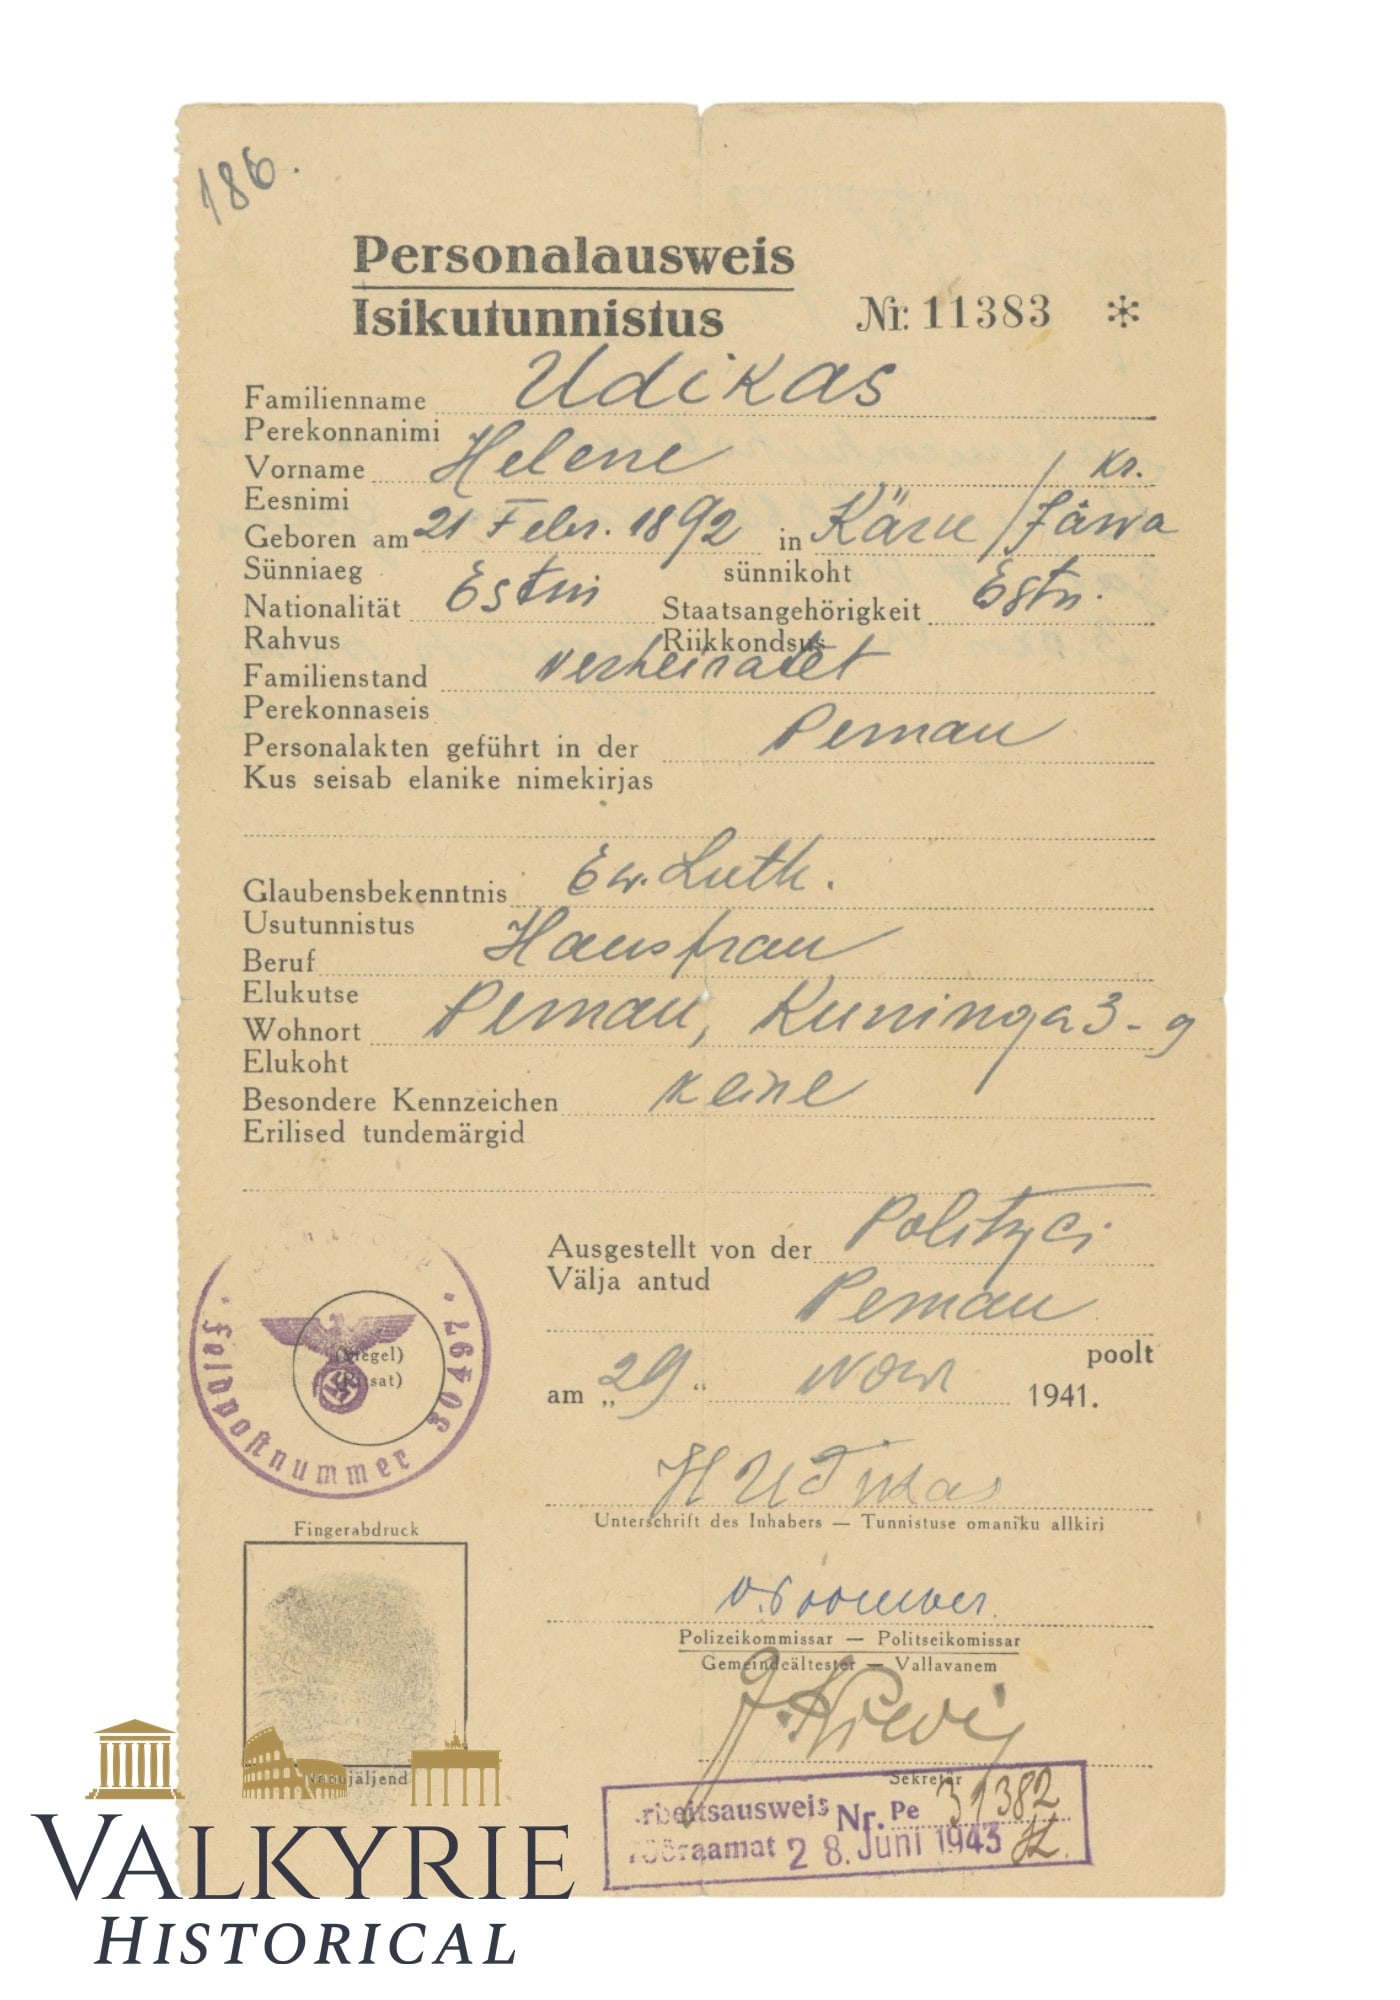 186.
Personalausweis
Isikutunnistus Nr. 11383 *
Familienname Udikas
Perekonnanimi
Vorname Helene Kr.
Eesnimi
Geboren am 21 Febr. 1892 in Käru / Järwa
Sünniaeg sünnikoht
Nationalität Estin Staatsangehörigkeit Estn.
Rahvus Riikkondsus
Familienstand verheiratet
Perekonnaseis
Personalakten geführt in der Pernau
Kus seisab elanike nimekirjas
Glaubensbekenntnis Ew. Luth.
Usutunnistus
Beruf Hausfrau
Elukutse
Wohnort Pernau, Kuninga 3-9
Elukoht
Besondere Kennzeichen keine
Erilised tundemärgid
Ausgestellt von der Polizei
Välja antud
Pernau
poolt
am „29“ Nov 1941.
(Siegel)
(Pitsat)
Feldpostnummer 30497
H Udikas
Unterschrift des Inhabers — Tunnistuse omaniku allkiri
Fingerabdruck
Polizeikommissar — Politseikomissar
Gemeindeältester — Vallavanem
Näpujäljend
Sekretär
Arbeitsausweis Nr. Pe 31382
Tööraamat 28. Juni 1943
VALKYRIE
HISTORICAL